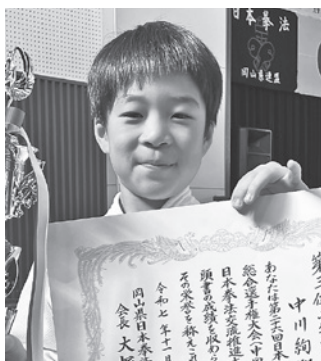 日本拳法
岡山県連盟
第三位
中川絢
あなたは第二六回日本
総合選手権大会(中
日本拳法交流推進
頭書の成績を収め
その栄誉を称え
令和七年十一
岡山県日本拳
会長 大